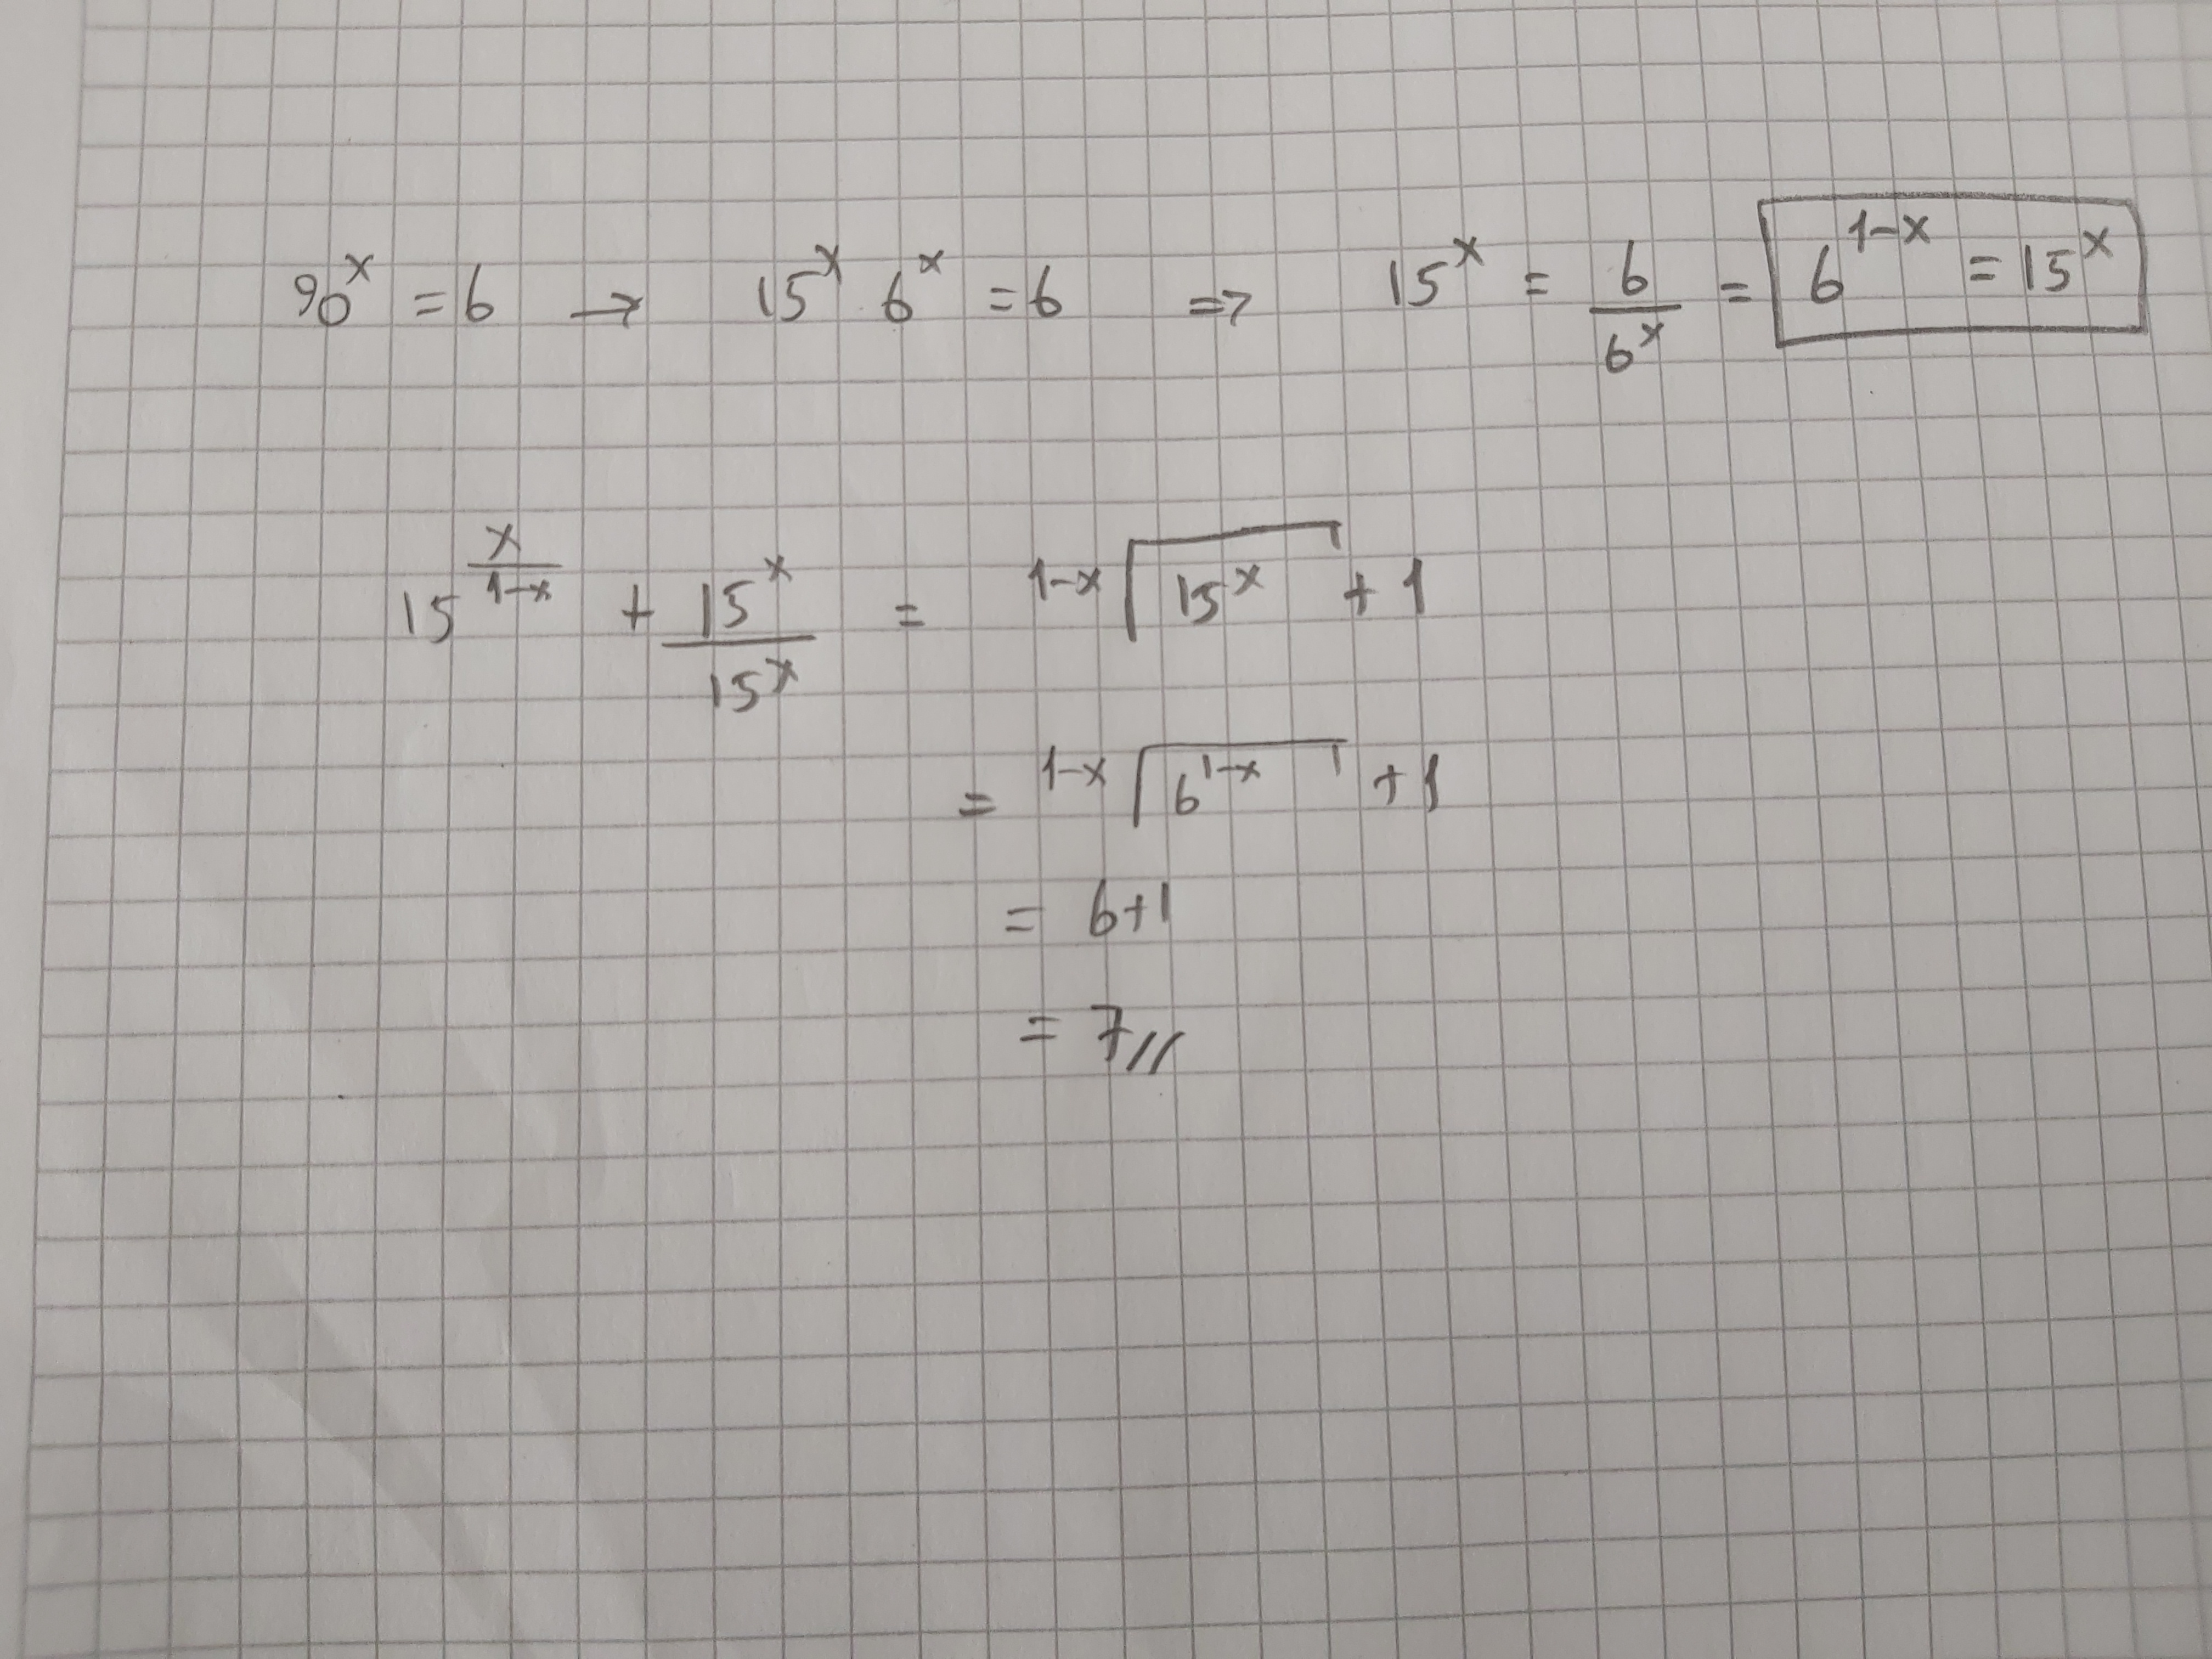 90^x = 6 → 15^x 6^x = 6 => 15^x = 6/6^x = 6^(1-x) = 15^x
15^(x/(1-x)) + 15^x/15^x = ^(1-x)√(15^x) + 1
= ^(1-x)√(6^(1-x)) + 1
= 6+1
= 7//